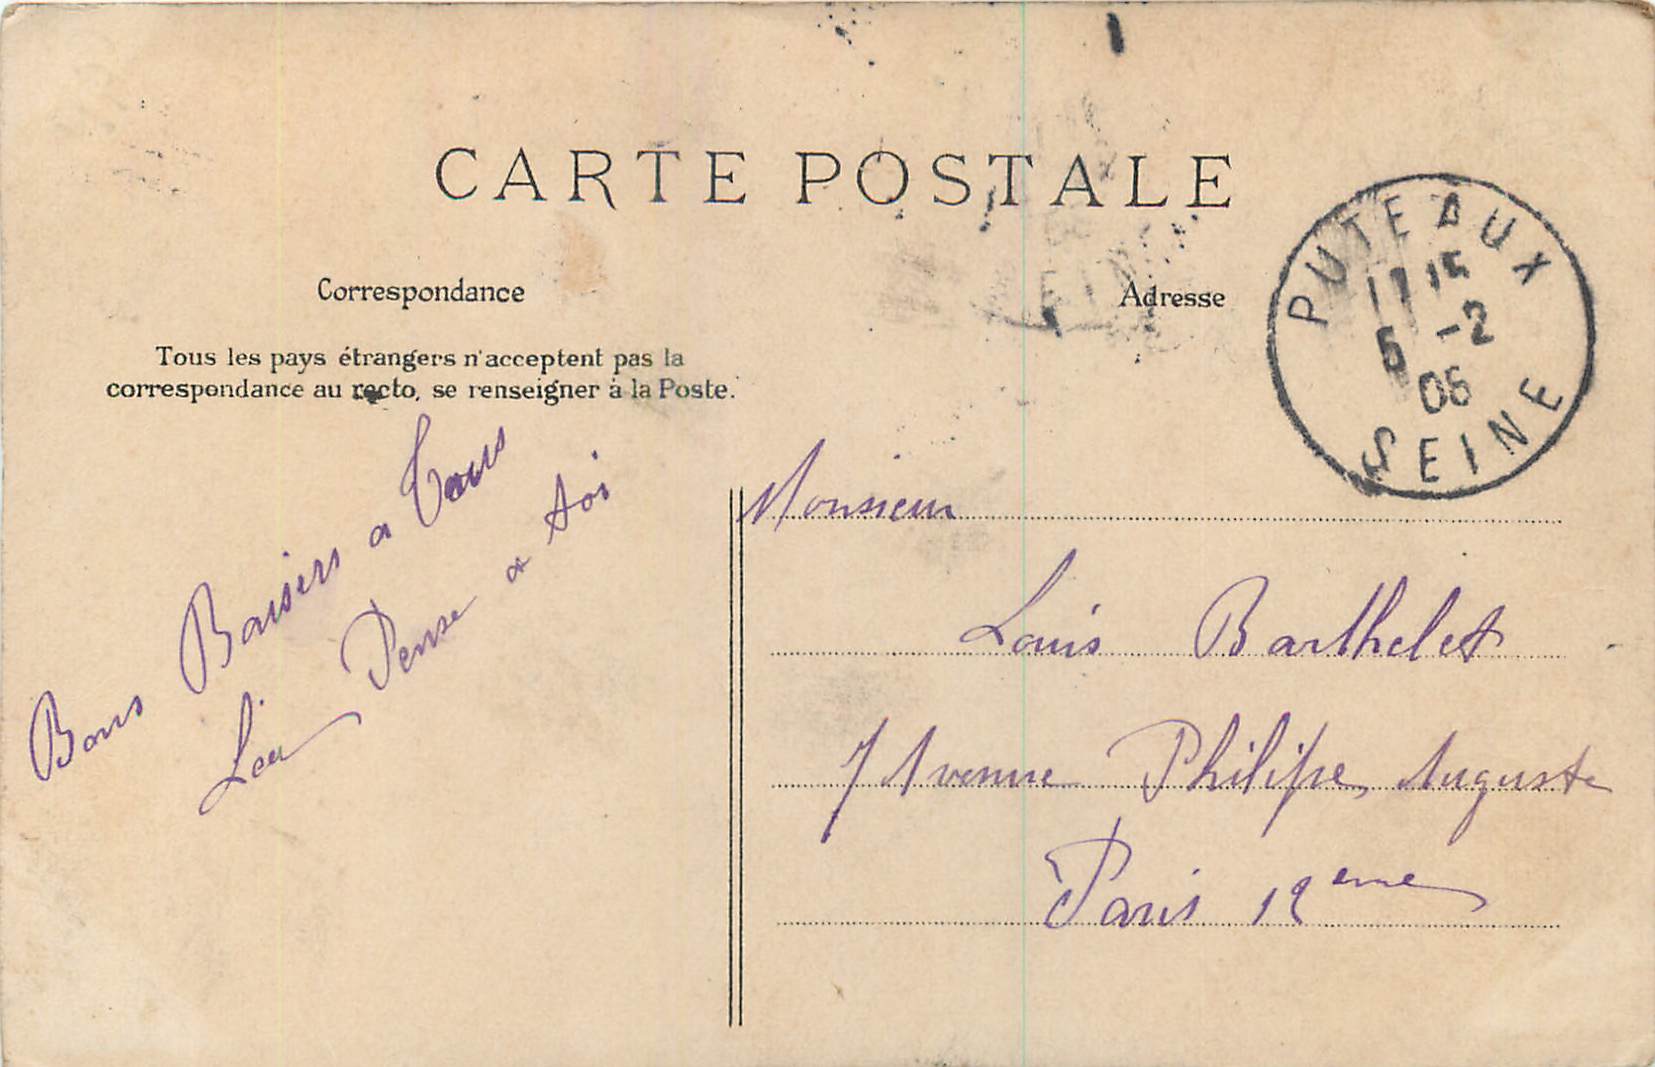 CARTE POSTALE
Correspondance
Tous les pays étrangers n'acceptent pas la
correspondance au recto, se renseigner à la Poste.
Bons Baisers a Tous
Pense a toi
Adresse
PUTEAUX
-2
SEINE
Monsieur
Louis Barthelet
7 Avenue Philipe Auguste
Paris 12eme